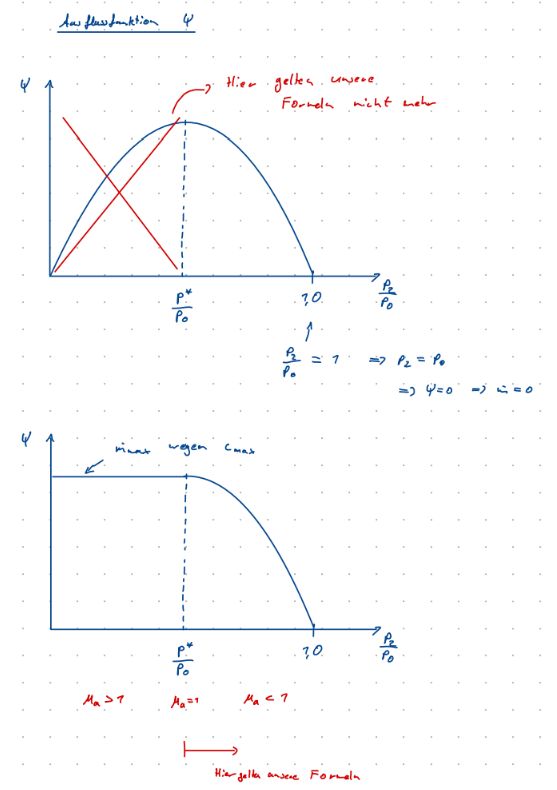 Ausflussfunktion ψ
ψ
Hier gelten unsere
Formeln nicht mehr
P*/P₀
1,0
P₂/P₀
P₂/P₀ = 1 => P₂ = P₀
=> ψ=0 => ṁ=0
ψ
ṁmax wegen cmax
P*/P₀
1,0
P₂/P₀
Ma>1 Ma=1 Ma<1
Hier gelten unsere Formeln